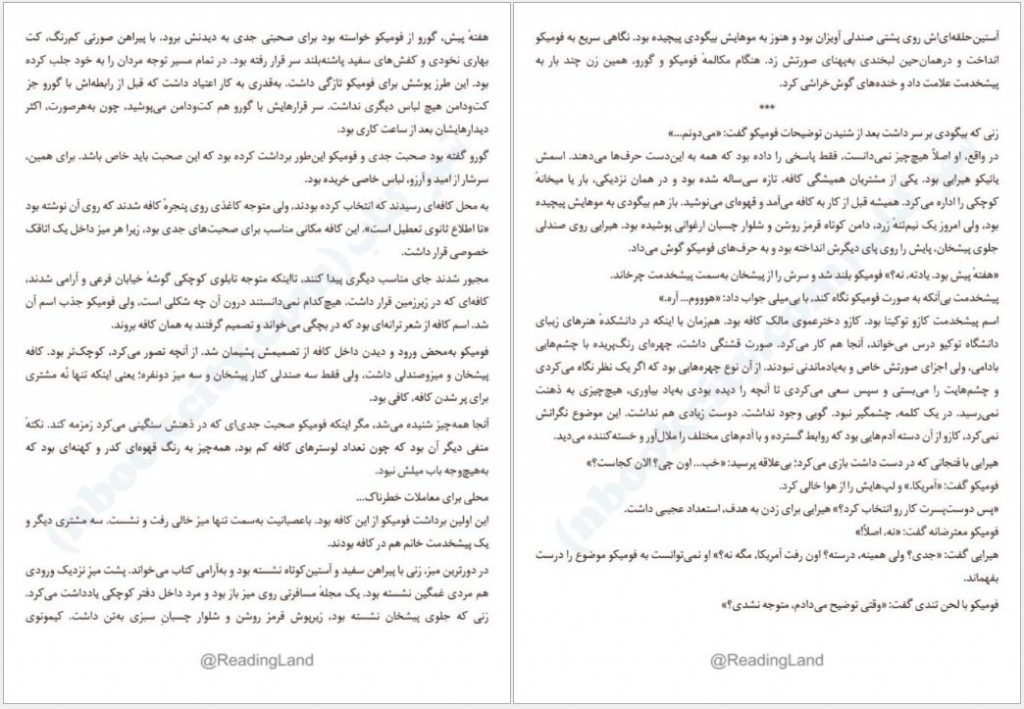 هفتهٔ پیش، گورو از فومیکو خواسته بود برای صحبتی جدی به دیدنش برود. با پیراهن صورتی کم‌رنگ، کت
بهاری نخودی و کفش‌های سفید پاشنه‌بلند سر قرار رفته بود. در تمام مسیر توجه مردان را به خود جلب کرده
بود. این طرز پوشش برای فومیکو تازگی داشت. به‌قدری به کار اعتیاد داشت که قبل از رابطه‌اش با گورو جز
کت‌ودامن هیچ لباس دیگری نداشت. سر قرارهایش با گورو هم کت‌ودامن می‌پوشید، چون به‌هرصورت، اکثر
دیدارهایشان بعد از ساعت کاری بود.
گورو گفته بود صحبت جدی و فومیکو این‌طور برداشت کرده بود که این صحبت باید خاص باشد. برای همین،
سرشار از امید و آرزو، لباس خاصی خریده بود.
به محل کافه‌ای رسیدند که انتخاب کرده بودند، ولی متوجه کاغذی روی پنجرهٔ کافه شدند که روی آن نوشته بود
«تا اطلاع ثانوی تعطیل است». این کافه مکانی مناسب برای صحبت‌های جدی بود، زیرا هر میز داخل یک اتاقک
خصوصی قرار داشت.
مجبور شدند جای مناسب دیگری پیدا کنند، تااینکه متوجه تابلوی کوچکی گوشهٔ خیابان فرعی و آرامی شدند،
کافه‌ای که در زیرزمین قرار داشت. هیچ‌کدام نمی‌دانستند درون آن چه شکلی است، ولی فومیکو جذب اسم آن
شد. اسم کافه از شعر ترانه‌ای بود که در بچگی می‌خواند و تصمیم گرفتند به همان کافه بروند.
فومیکو به‌محض ورود و دیدن داخل کافه از تصمیمش پشیمان شد. از آنچه تصور می‌کرد، کوچک‌تر بود. کافه
پیشخان و میزوصندلی داشت، ولی فقط سه صندلی کنار پیشخان و سه میز دونفره؛ یعنی اینکه تنها نُه مشتری
برای پر شدن کافه، کافی بود.
آنجا همه‌چیز شنیده می‌شد، مگر اینکه فومیکو صحبت جدی‌ای که در ذهنش سنگینی می‌کرد زمزمه کند. نکتهٔ
منفی دیگر آن بود که چون تعداد لوسترهای کافه کم بود، همه‌چیز به رنگ قهوه‌ای کدر و کهنه‌ای بود که
به‌هیچ‌وجه باب میلش نبود.
محلی برای معاملات خطرناک...
این اولین برداشت فومیکو از این کافه بود. باعصبانیت به‌سمت تنها میز خالی رفت و نشست. سه مشتری دیگر و
یک پیشخدمت خانم هم در کافه بودند.
در دورترین میز، زنی با پیراهن سفید و آستین‌کوتاه نشسته بود و به‌آرامی کتاب می‌خواند. پشت میزِ نزدیک ورودی
هم مردی غمگین نشسته بود. یک مجلهٔ مسافرتی روی میز باز بود و مرد داخل دفتر کوچکی یادداشت می‌کرد.
زنی که جلوی پیشخان نشسته بود، زیرپوش قرمز روشن و شلوار چسبانِ سبزی به‌تن داشت. کیمونوی
@ReadingLand
آستین‌حلقه‌ای‌اش روی پشتی صندلی آویزان بود و هنوز به موهایش بیگودی پیچیده بود. نگاهی سریع به فومیکو
انداخت و درهمان‌حین لبخندی به‌پهنای صورتش زد. هنگام مکالمهٔ فومیکو و گورو، همین زن چند بار به
پیشخدمت علامت داد و خنده‌های گوش‌خراشی کرد.
***
زنی که بیگودی بر سر داشت بعد از شنیدن توضیحات فومیکو گفت: «می‌دونم...»
در واقع، او اصلاً هیچ‌چیز نمی‌دانست، فقط پاسخی را داده بود که همه به این‌دست حرف‌ها می‌دهند. اسمش
یائیکو هیرایی بود. یکی از مشتریان همیشگی کافه، تازه سی‌ساله شده بود و در همان نزدیکی، بار یا میخانهٔ
کوچکی را اداره می‌کرد. همیشه قبل از کار به کافه می‌آمد و قهوه‌ای می‌نوشید. باز هم بیگودی به موهایش پیچیده
بود، ولی امروز یک نیم‌تنهٔ زرد، دامن کوتاه قرمز روشن و شلوار چسبان ارغوانی پوشیده بود. هیرایی روی صندلی
جلوی پیشخان، پایش را روی پای دیگرش انداخته بود و به حرف‌های فومیکو گوش می‌داد.
«هفتهٔ پیش بود. یادته، نه؟» فومیکو بلند شد و سرش را از پیشخان به‌سمت پیشخدمت چرخاند.
پیشخدمت بی‌آنکه به صورت فومیکو نگاه کند، با بی‌میلی جواب داد: «هوووم... آره.»
اسم پیشخدمت کازو توکیتا بود. کازو دخترعموی مالک کافه بود. هم‌زمان با اینکه در دانشکدهٔ هنرهای زیبای
دانشگاه توکیو درس می‌خواند، آنجا هم کار می‌کرد. صورت قشنگی داشت، چهره‌ای رنگ‌پریده با چشم‌هایی
بادامی، ولی اجزای صورتش خاص و به‌یادماندنی نبودند. از آن نوع چهره‌هایی بود که اگر یک نظر نگاه می‌کردی
و چشم‌هایت را می‌بستی و سپس سعی می‌کردی تا آنچه را دیده بودی به‌یاد بیاوری، هیچ‌چیزی به ذهنت
نمی‌رسید. در یک کلمه، چشمگیر نبود. گویی وجود نداشت. دوست زیادی هم نداشت. این موضوع نگرانش
نمی‌کرد، کازو از آن دسته آدم‌هایی بود که روابط گسترده و با آدم‌های مختلف را ملال‌آور و خسته‌کننده می‌دید.
هیرایی با فنجانی که در دست داشت بازی می‌کرد؛ بی‌علاقه پرسید: «خب... اون چی؟ الان کجاست؟»
فومیکو گفت: «آمریکا.» و لپ‌هایش را از هوا خالی کرد.
«پس دوست‌پسرت کار رو انتخاب کرد؟» هیرایی برای زدن به هدف، استعداد عجیبی داشت.
فومیکو معترضانه گفت: «نه، اصلاً!»
هیرایی گفت: «جدی؟ ولی همینه، درسته؟ اون رفت آمریکا، مگه نه؟» او نمی‌توانست به فومیکو موضوع را درست
بفهماند.
فومیکو با لحن تندی گفت: «وقتی توضیح می‌دادم، متوجه نشدی؟»
@ReadingLand